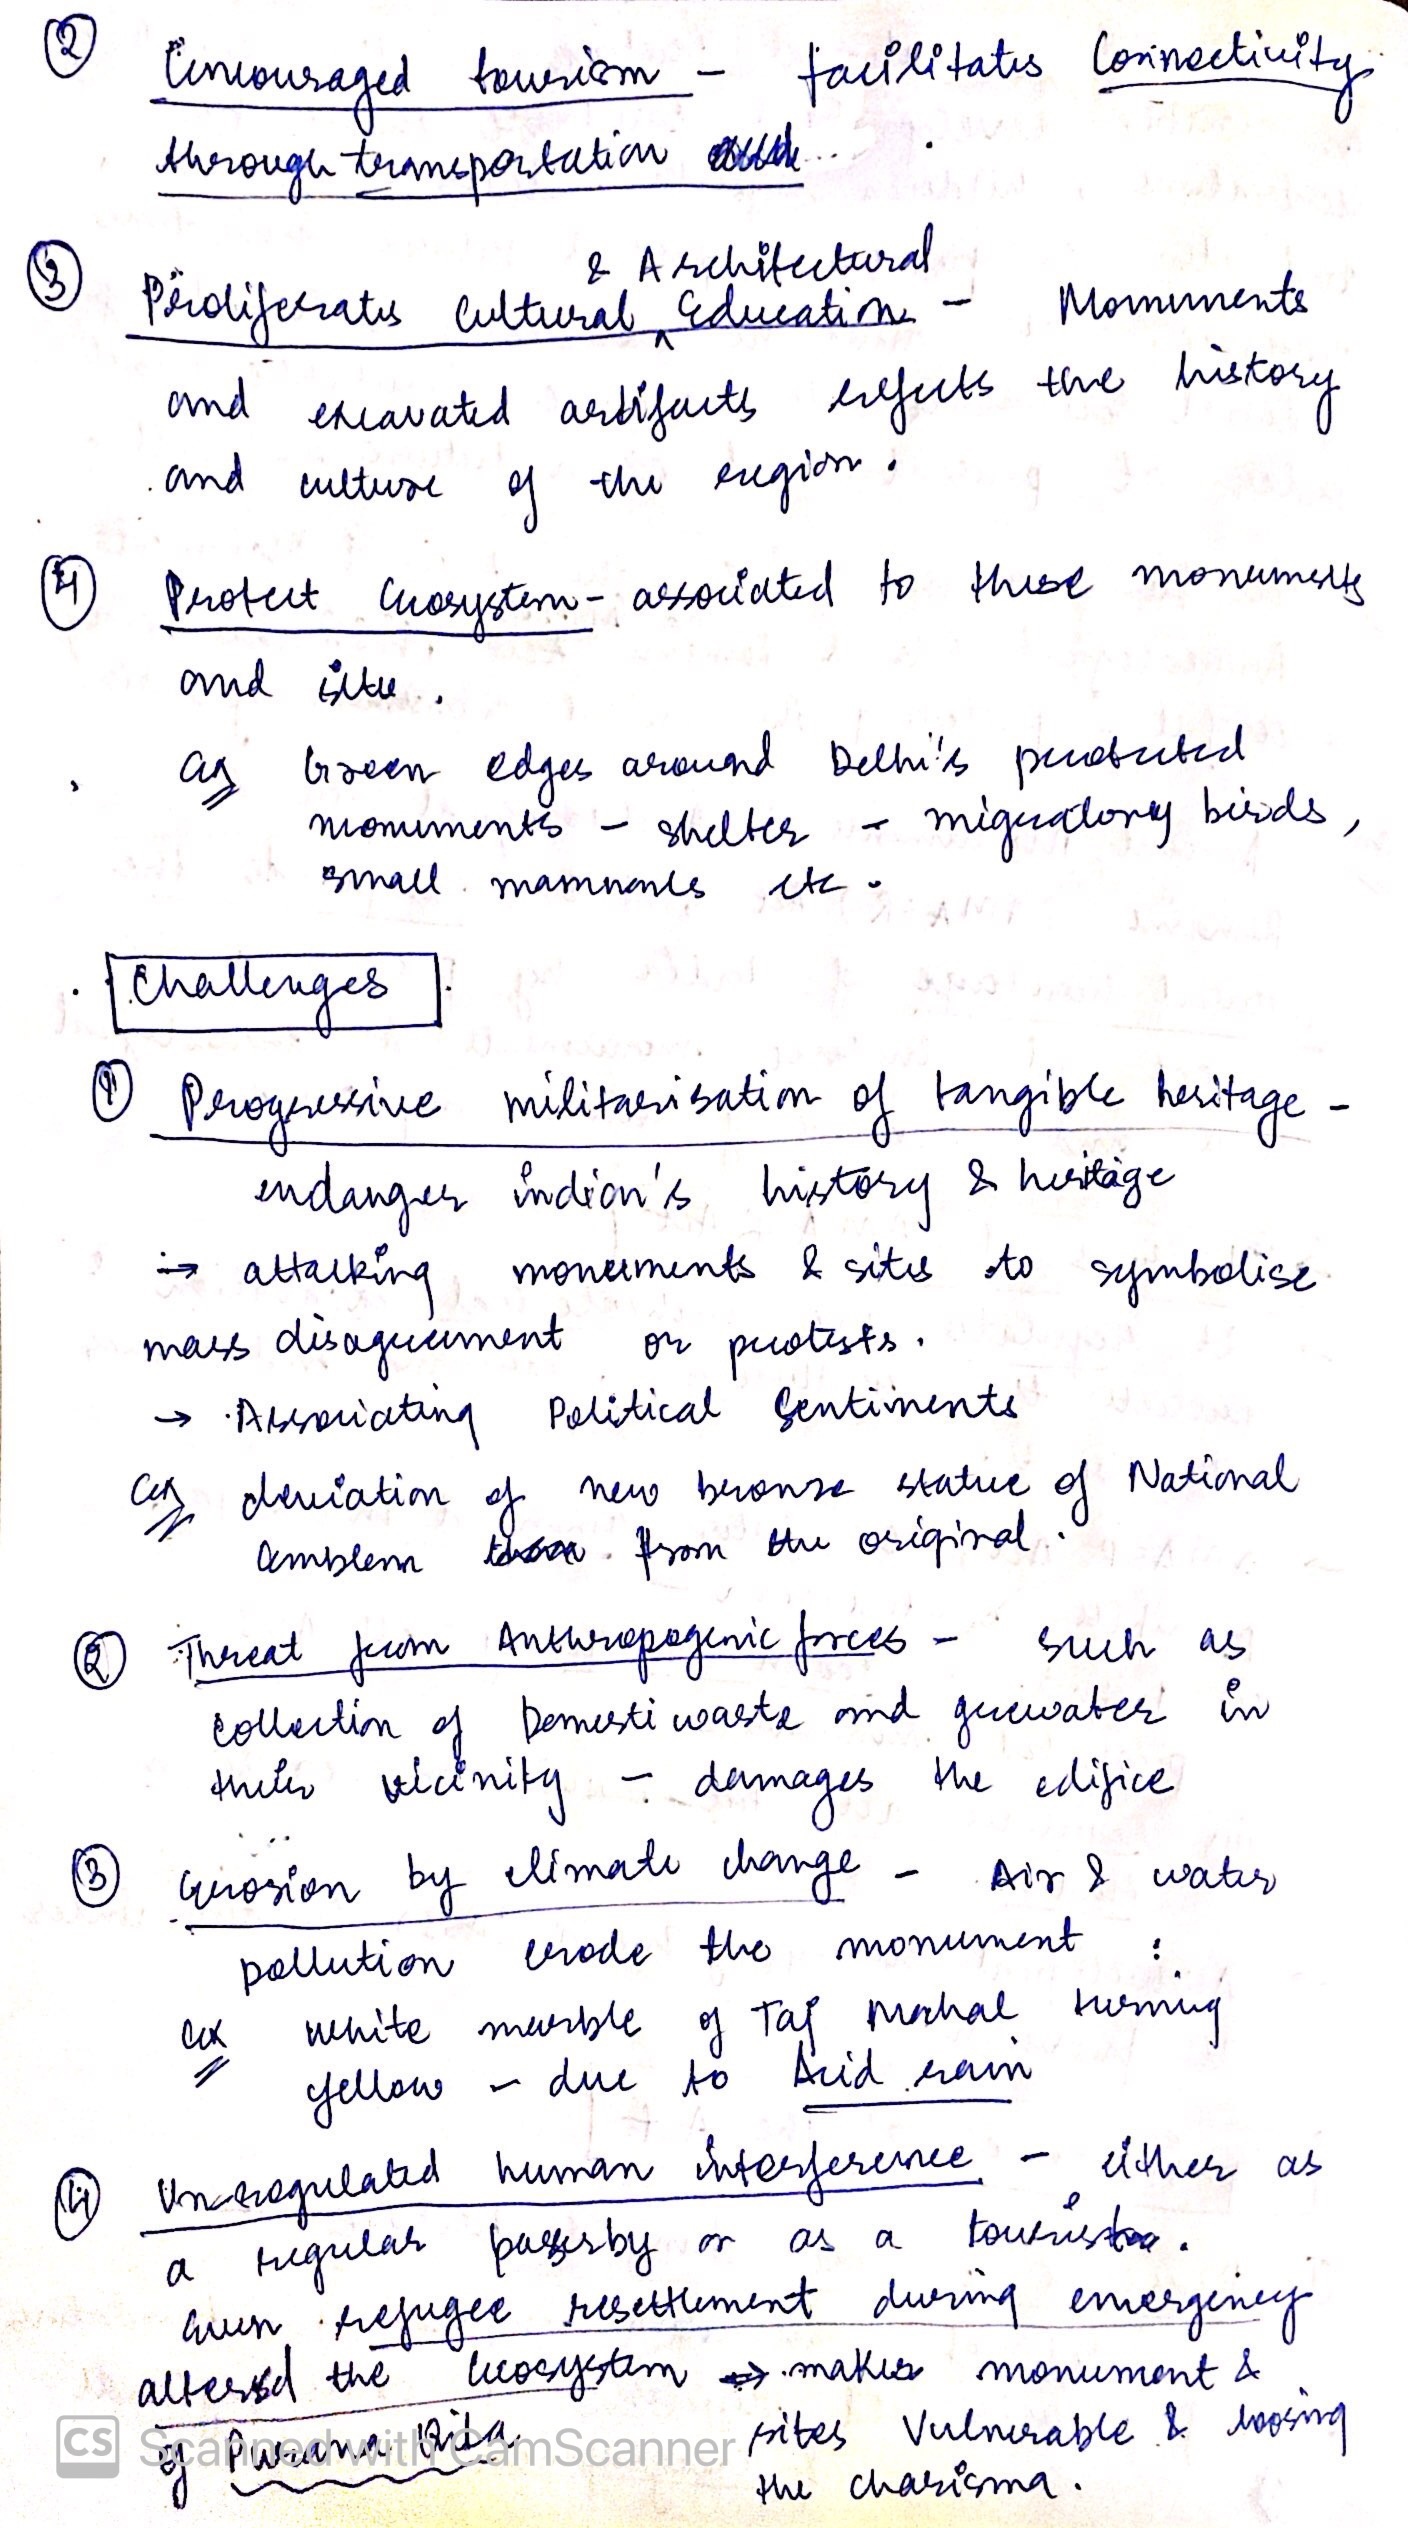 ② Encouraged tourism - facilitates Connectivity
through transportation
& Architectural
③ Proliferates Cultural ^ Education - Monuments
and excavated artifacts reflects the history
and culture of the region.
④ Protect Ecosystem - associated to these monuments
and site.
ex Green edges around Delhi's protected
monuments - shelter - migratory birds,
small mammals etc.
Challenges
① Progressive militarisation of tangible heritage -
endanger indian's history & heritage
→ attacking monuments & sites to symbolise
mass disagreement or protests.
→ Associating Political Sentiments
ex deviation of new bronze statue of National
Emblem from the original.
② Threat from Anthropogenic forces - such as
collection of Domesti waste and greywater in
their vicinity - damages the edifice
③ Erosion by climate change - Air & water
pollution erode the monument :
ex white marble of Taj Mahal turning
yellow - due to Acid rain
④ Unregulated human interference - either as
a regular passerby or as a tourist.
Even refugee resettlement during emergency
altered the Ecosystem → makes monument &
of Purana Qila sites Vulnerable & loosing
the charisma.
CS Scanned with CamScanner